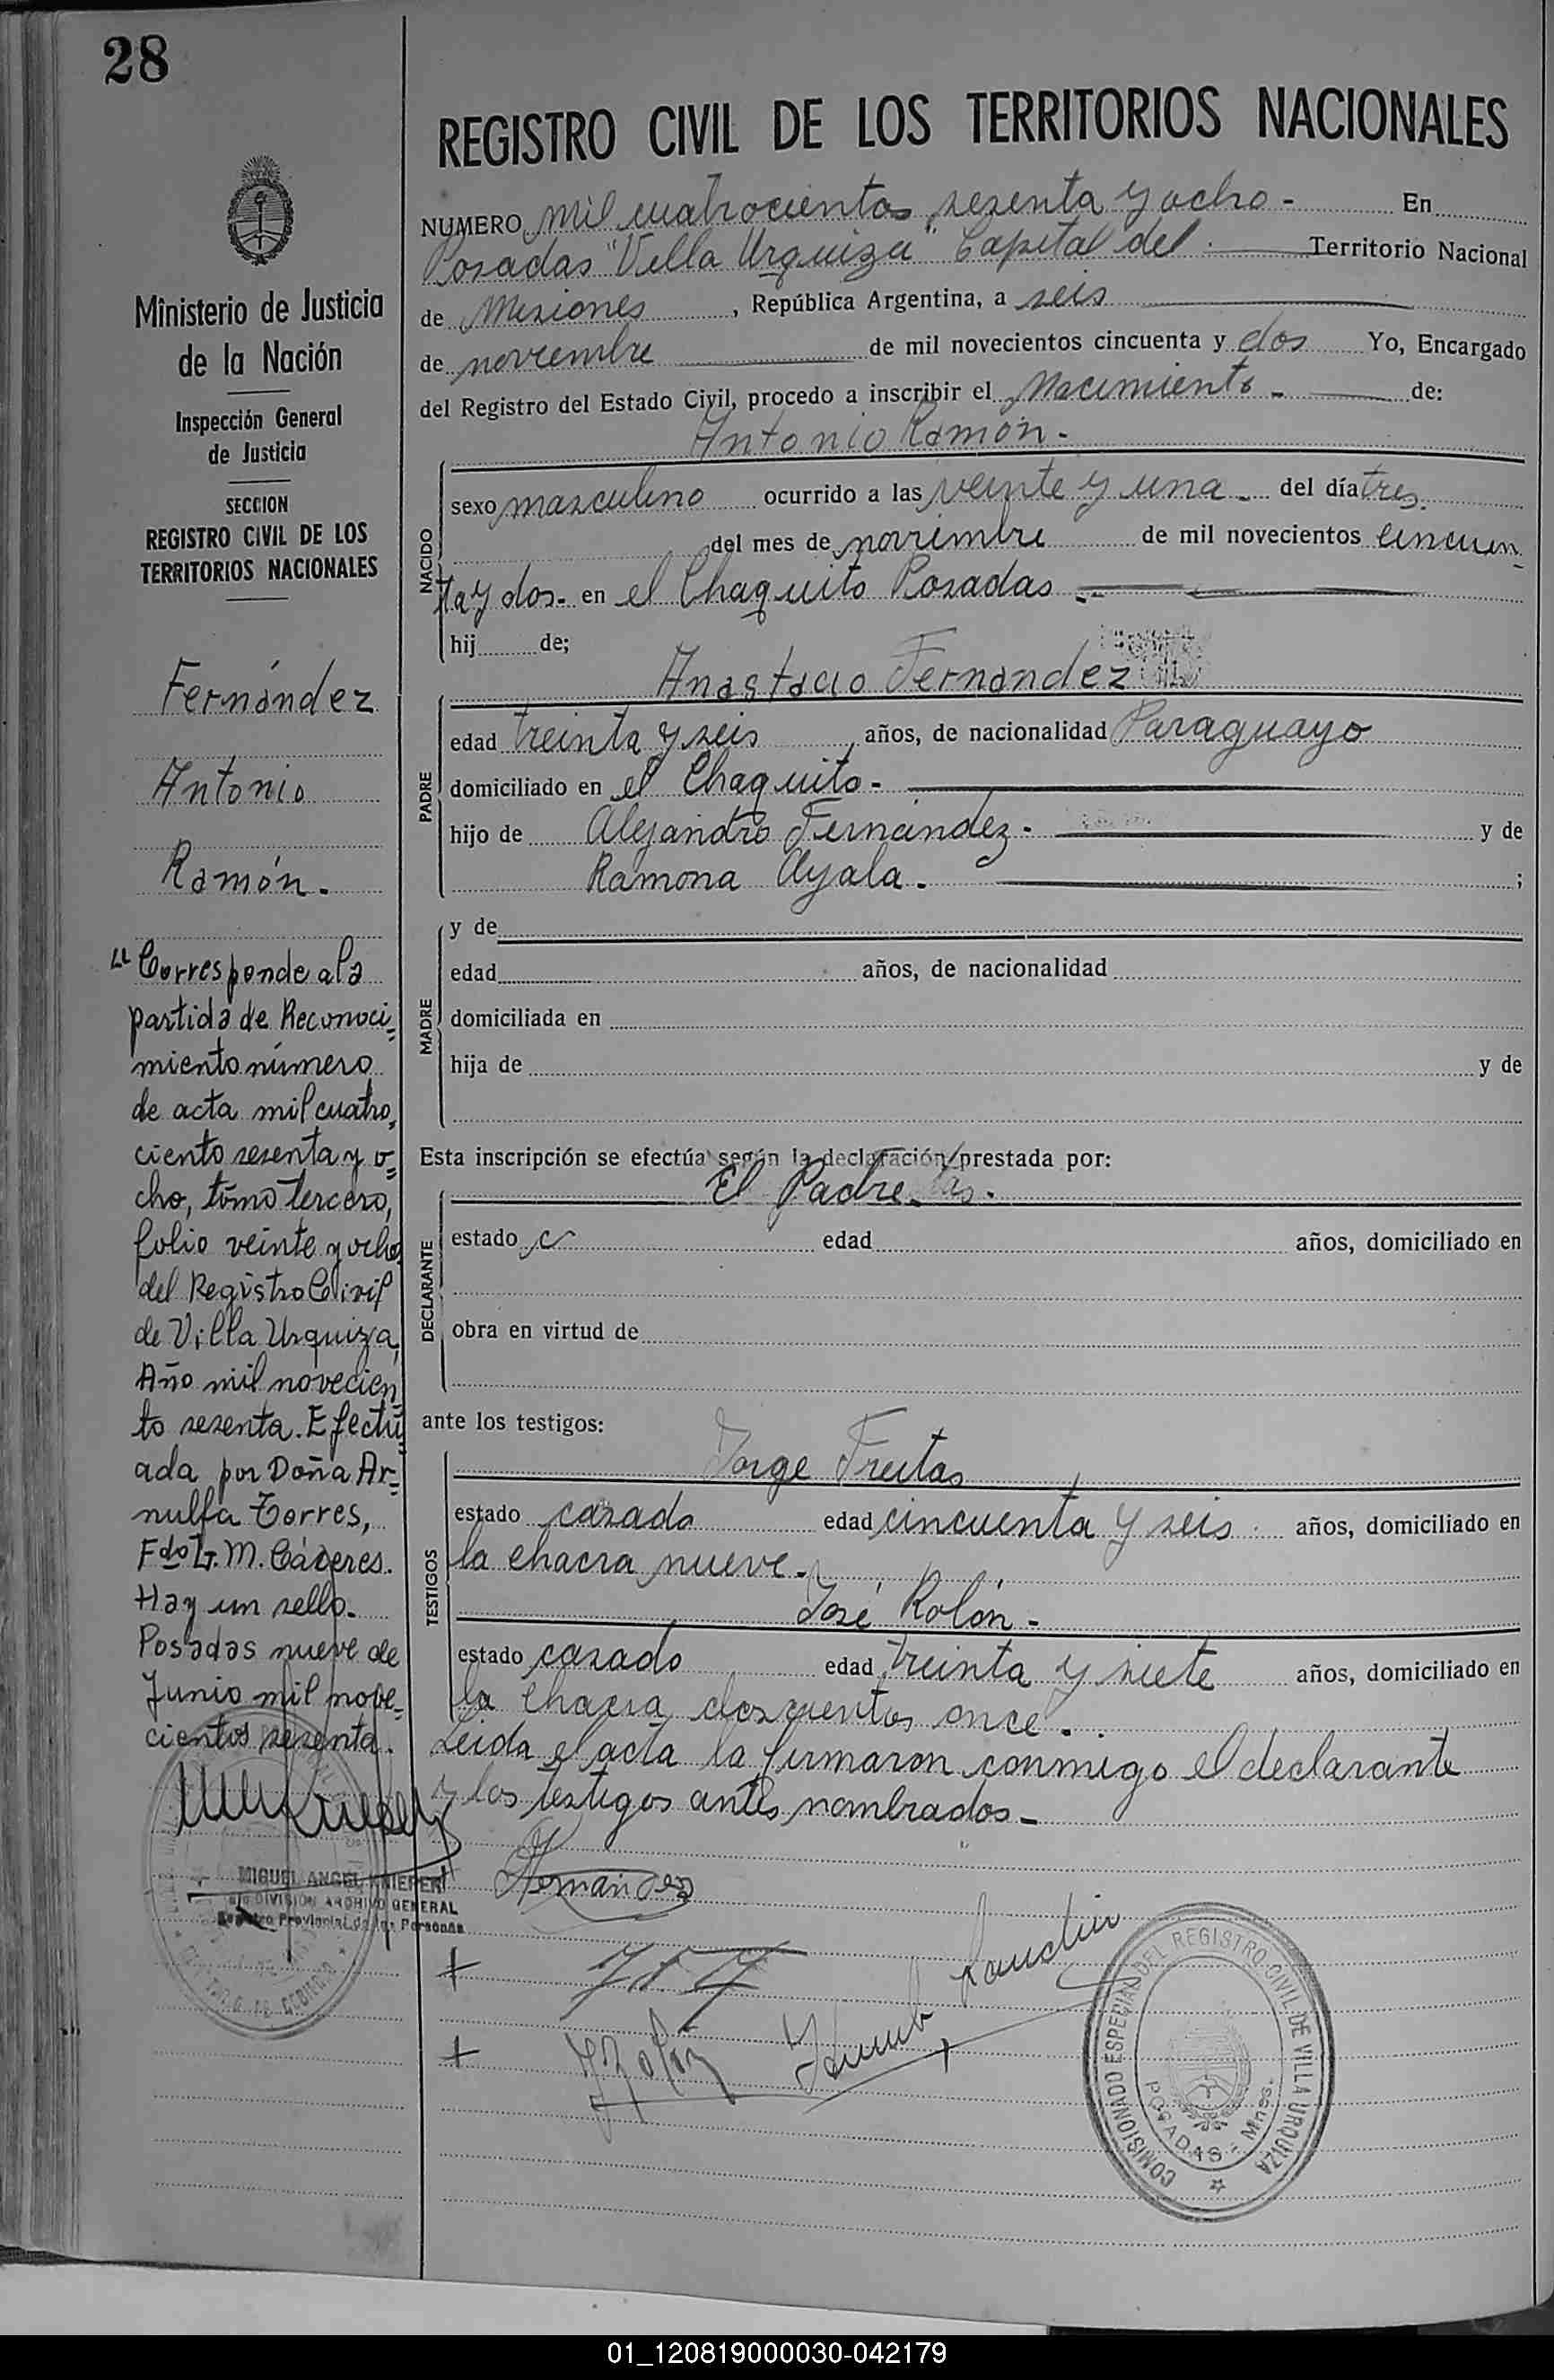 28
REGISTRO CIVIL DE LOS TERRITORIOS NACIONALES
Ministerio de Justicia
de la Nación
Inspección General
de Justicia
SECCION
REGISTRO CIVIL DE LOS
TERRITORIOS NACIONALES
Fernández
Antonio
Ramón.
"Corresponde a la
partida de Reconoci=
miento número
de acta mil cuatro=
ciento sesenta y o=
cho, tomo tercero,
folio veinte y ocho
del Registro Civil
de Villa Urquiza,
Año mil novecien=
to sesenta. Efectu=
ada por Doña Ar=
nulfa Torres,
Fdo G. M. Cáceres.
Hay un sello.
Posadas nueve de
Junio mil nove=
cientos sesenta.
MIGUEL ANGEL KNIEPER
DIVISION ARCHIVO GENERAL
Registro Provincial de las Personas
NUMERO mil cuatrocientos sesenta y ocho - En
Posadas "Villa Urquiza" Capital del Territorio Nacional
de Misiones, República Argentina, a seis
de noviembre de mil novecientos cincuenta y dos Yo, Encargado
del Registro del Estado Civil, procedo a inscribir el Nacimiento - de:
Antonio Ramón -
NACIDO
sexo masculino ocurrido a las veinte y una - del día tres.
del mes de noviembre de mil novecientos cincuen
ta y dos - en el Chaquito Posadas -
hij de;
Anastacio Fernandez
PADRE
edad treinta y seis años, de nacionalidad Paraguayo
domiciliado en el Chaquito -
hijo de Alejandro Fernández - y de
Ramona Ayala - ;
MADRE
y de
edad años, de nacionalidad
domiciliada en
hija de y de
Esta inscripción se efectúa según la declaración prestada por:
El Padre.
DECLARANTE
estado c edad años, domiciliado en
obra en virtud de
ante los testigos:
Jorge Freitas
TESTIGOS
estado casado edad cincuenta y seis años, domiciliado en
la chacra nueve -
José Rolón -
estado casado edad treinta y siete años, domiciliado en
la chacra doscientos once -
Leida el acta la firmaron conmigo el declarante
y los testigos antes nombrados -
COMISIONADO ESPECIAL DEL REGISTRO CIVIL DE VILLA URQUIZA
POSADAS - Mnes.
01_120819000030-042179